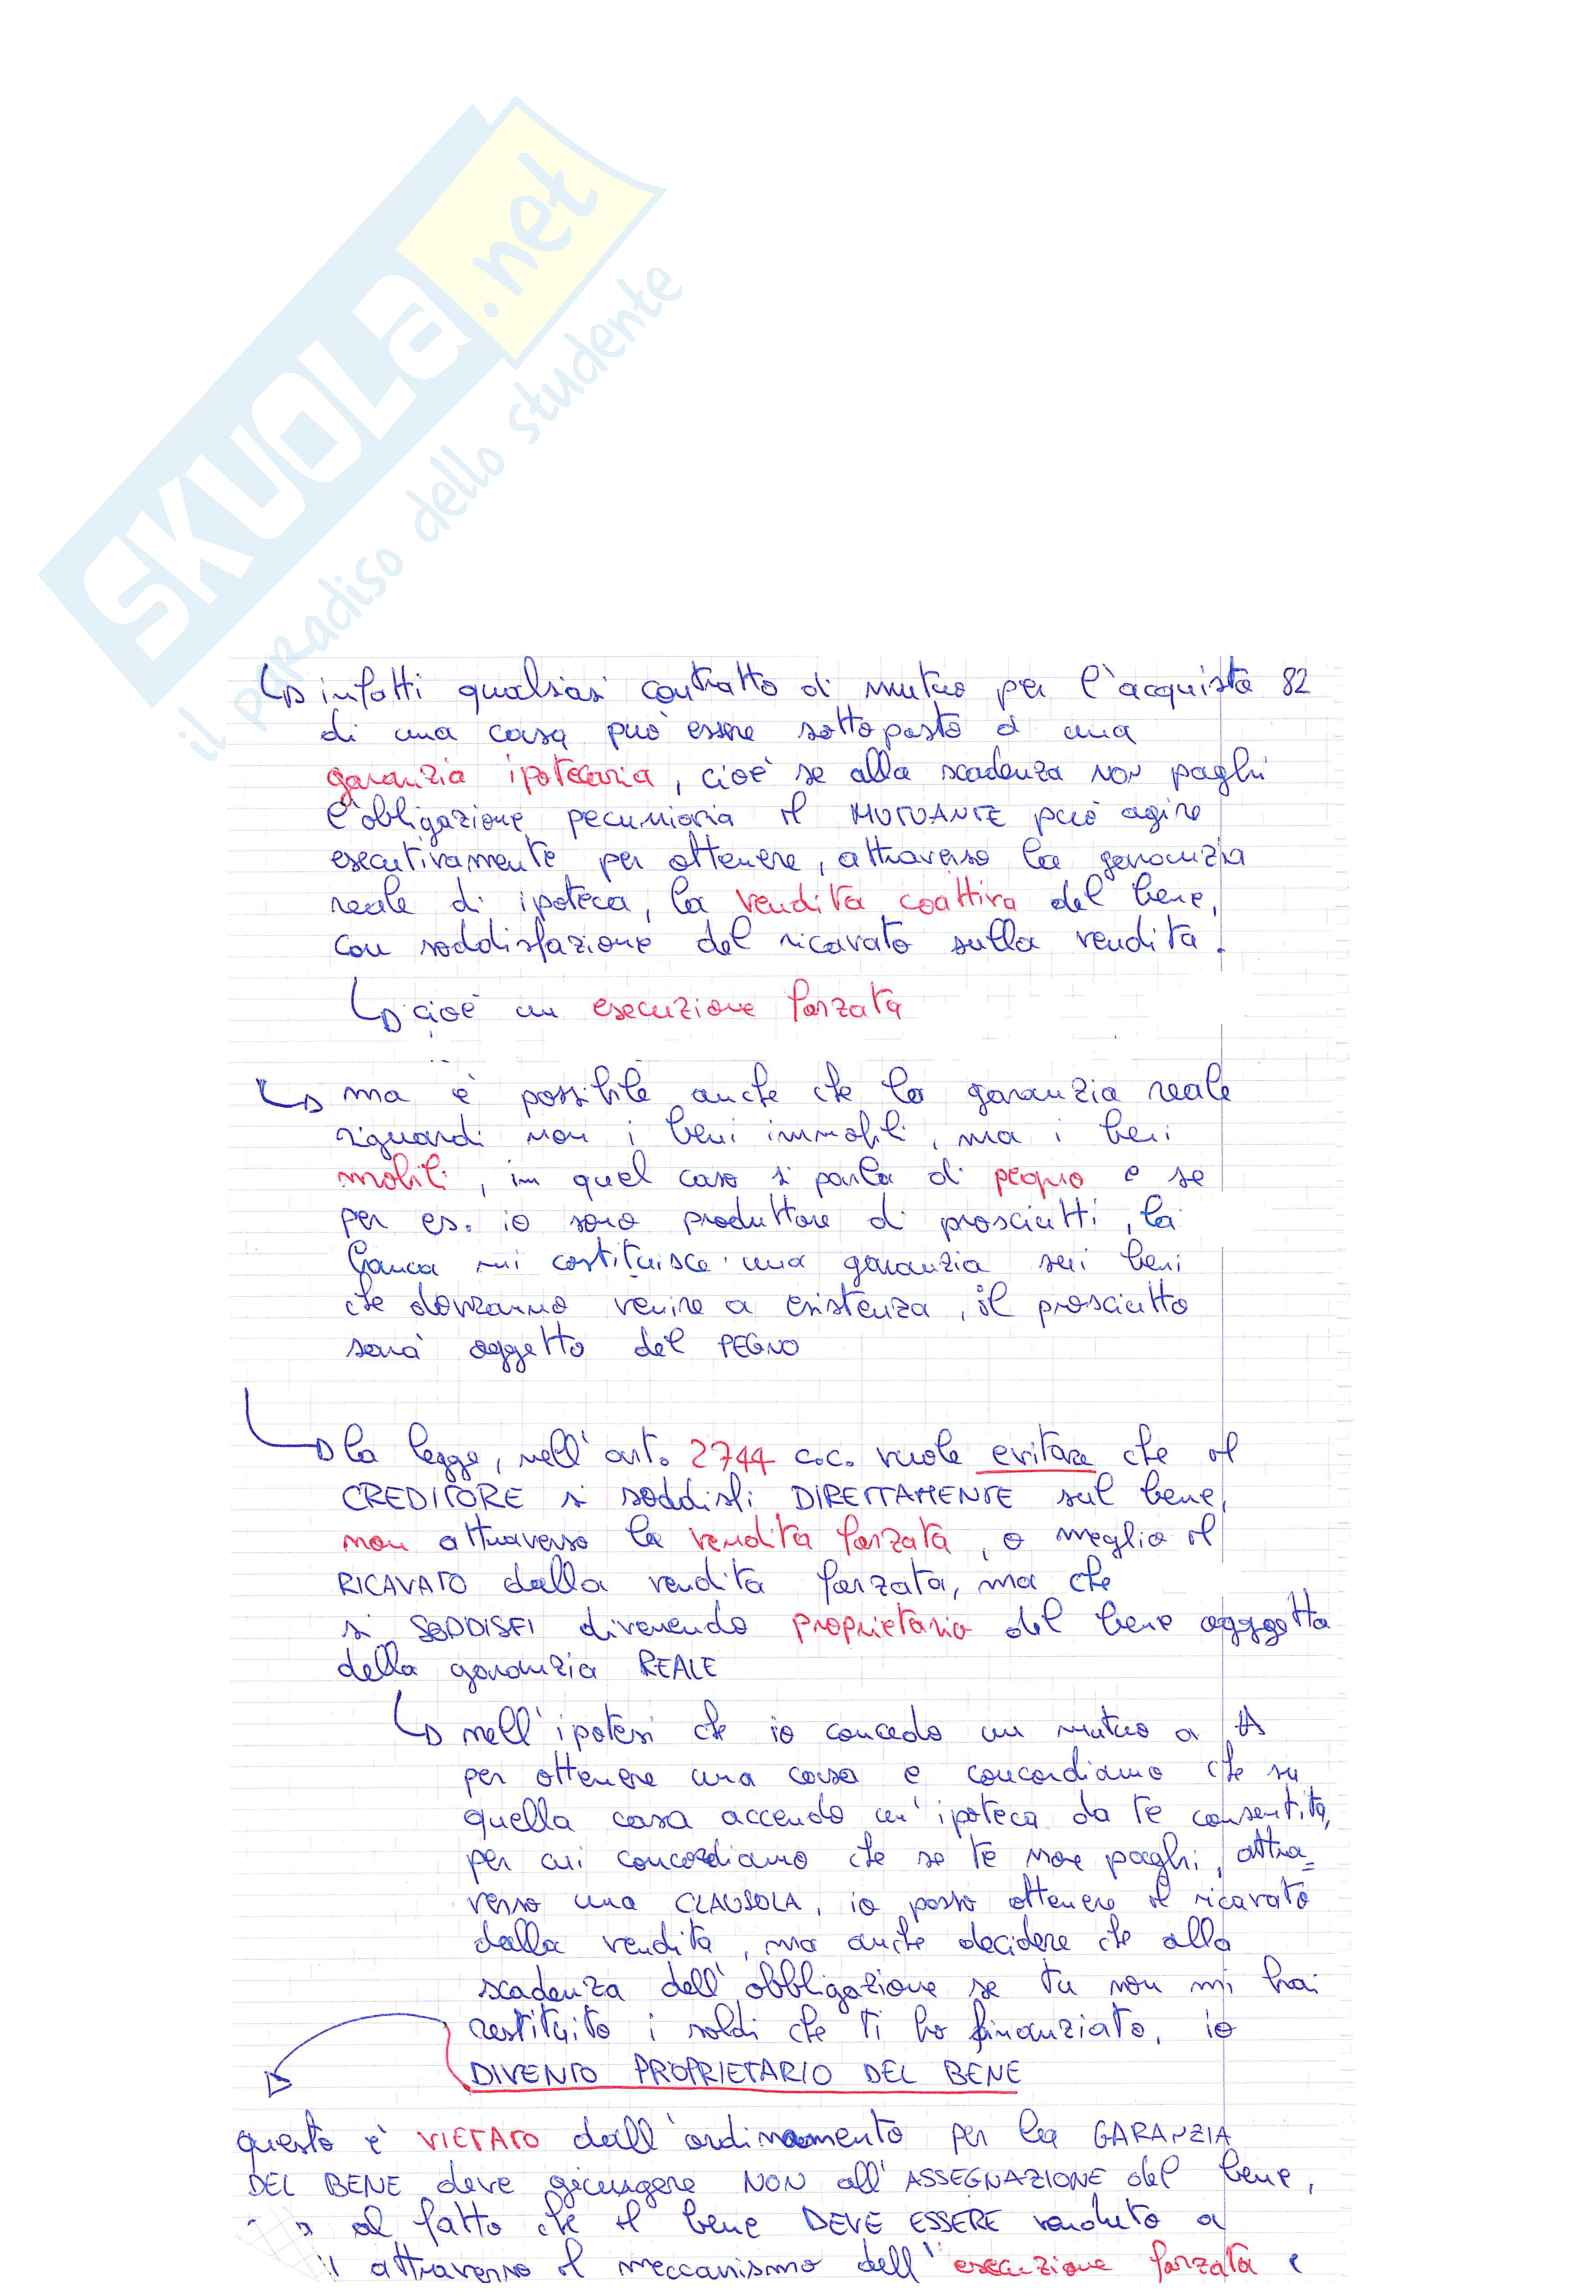 SKUOLA.net
il paradiso dello studente
infatti qualsiasi contratto di mutuo per l'acquisto 82
di una casa può essere sottoposto a una
garanzia ipotecaria, cioè se alla scadenza non paghi
l'obligazione pecuniaria il MUTUANTE può agire
esecutivamente per ottenere, attraverso la garanzia
reale di ipoteca, la vendita coattiva del bene,
con soddisfazione del ricavato sulla vendita.
cioè un esecuzione forzata
ma è possibile anche che la garanzia reale
riguardi non i beni immobili, ma i beni
mobili, in quel caso si parla di pegno e se
per es. io sono produttore di prosciutti, la
banca mi costituisce una garanzia sui beni
che dovranno venire a esistenza, il prosciutto
sarà oggetto del PEGNO
la legge, nell'art. 2744 c.c. vuole evitare che il
CREDITORE si soddisfi DIRETTAMENTE sul bene,
non attraverso la vendita forzata, o meglio il
RICAVATO dalla vendita forzata, ma che
si SODDISFI divenendo proprietario del bene oggetto
della garanzia REALE
nell'ipotesi che io concedo un mutuo a A
per ottenere una casa e concordiamo che su
quella casa accendo un'ipoteca da te consentita,
per cui concordiamo che se te non paghi, attra=
verso una CLAUSOLA, io posso ottenere il ricavato
dalla vendita, ma anche decidere che alla
scadenza dell'obbligazione se tu non mi hai
restituito i soldi che ti ho finanziato, io
DIVENTO PROPRIETARIO DEL BENE
questo è VIETATO dall'ordinamento per la GARANZIA
DEL BENE deve giungere NON all'ASSEGNAZIONE del bene,
al fatto che il bene DEVE ESSERE venduto a
attraverso il meccanismo dell'esecuzione forzata e